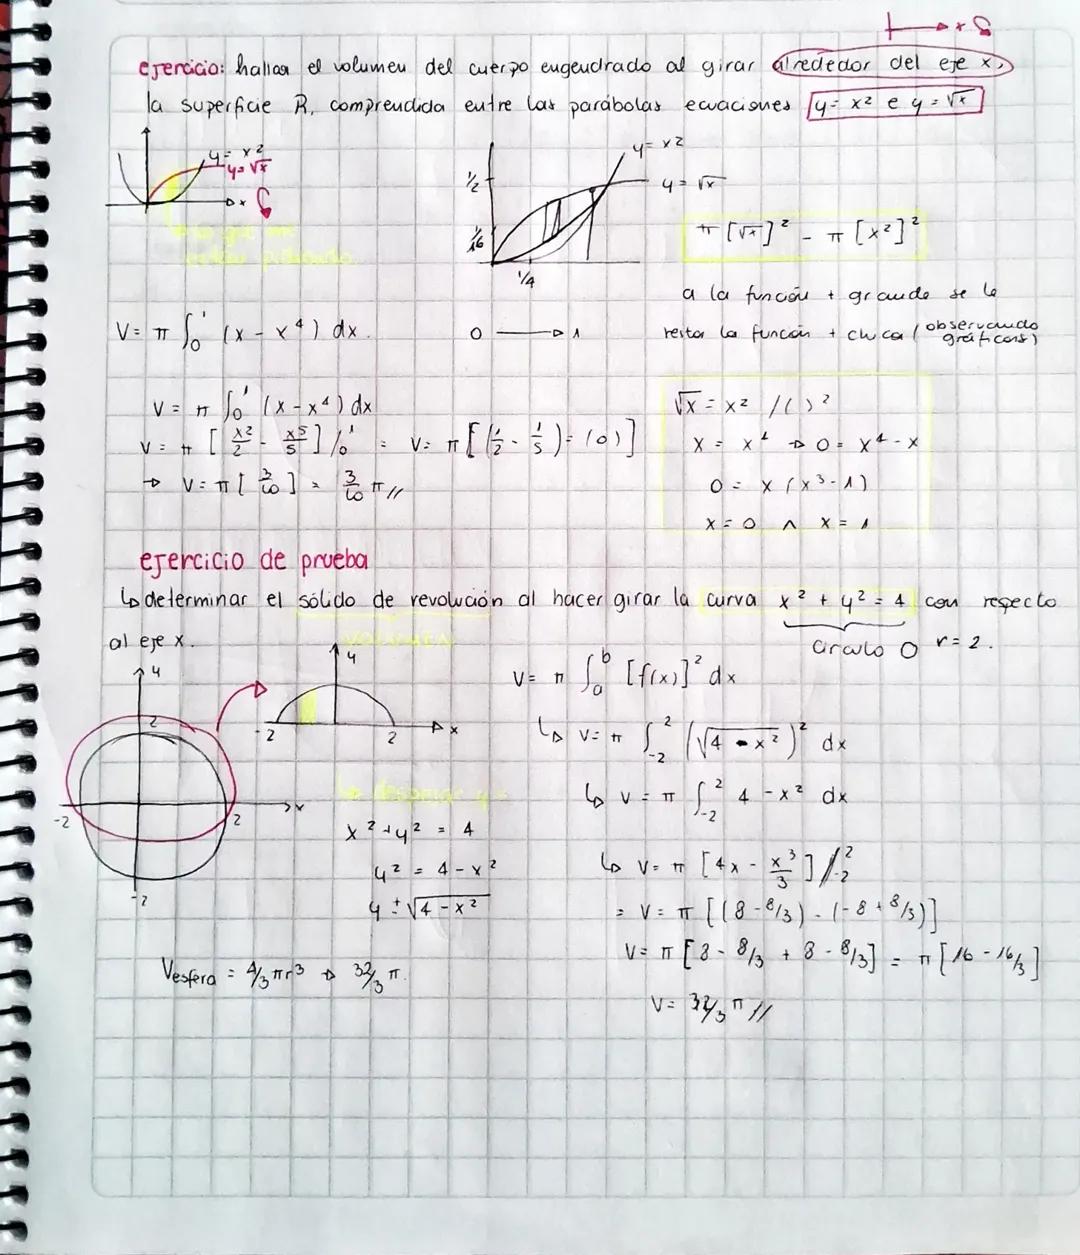 ejercicio: hallar el volumen del cuerpo engendrado al girar alrededor del eje x,
la superficie R, comprendida entre las parábolas ecuaciones y = x² e y = √x
y = x²
y = √x
x
y = x²
y = √x
1/2
1/16
1/4
π [√x]² - π [x²]²
a la función + grande se le
resta la función + chica (observando gráficos)
V = π ∫₀¹ (x - x⁴) dx.
0 → 1
V = π ∫₀¹ (x - x⁴) dx
V = π [x²/2 - x⁵/5] /₀¹ = V = π [(1/2 - 1/5) - (0)]
→ V = π [3/10] = 3/10 π //
√x = x² /( )²
x = x⁴ → 0 = x⁴ - x
0 = x (x³ - 1)
x = 0 ∧ x = 1
ejercicio de prueba
↳ determinar el sólido de revolución al hacer girar la curva x² + y² = 4 con respecto
al eje x.
VOLUMEN
círculo O r = 2.
y
2
-2
2
x
-2
y
-2
2
x
V = π ∫ₐᵇ [f(x)]² dx
↳ V = π ∫₋₂² (√4 - x²)² dx
↳ despejar y =
↳ V = π ∫₋₂² 4 - x² dx
x² + y² = 4
y² = 4 - x²
y ± √4 - x²
↳ V = π [4x - x³/3] /₋₂²
= V = π [(8 - 8/3) - (-8 + 8/3)]
V = π [8 - 8/3 + 8 - 8/3] = π [16 - 16/3]
V = 32/3 π //
Vesfera = 4/3 πr³ → 32/3 π.